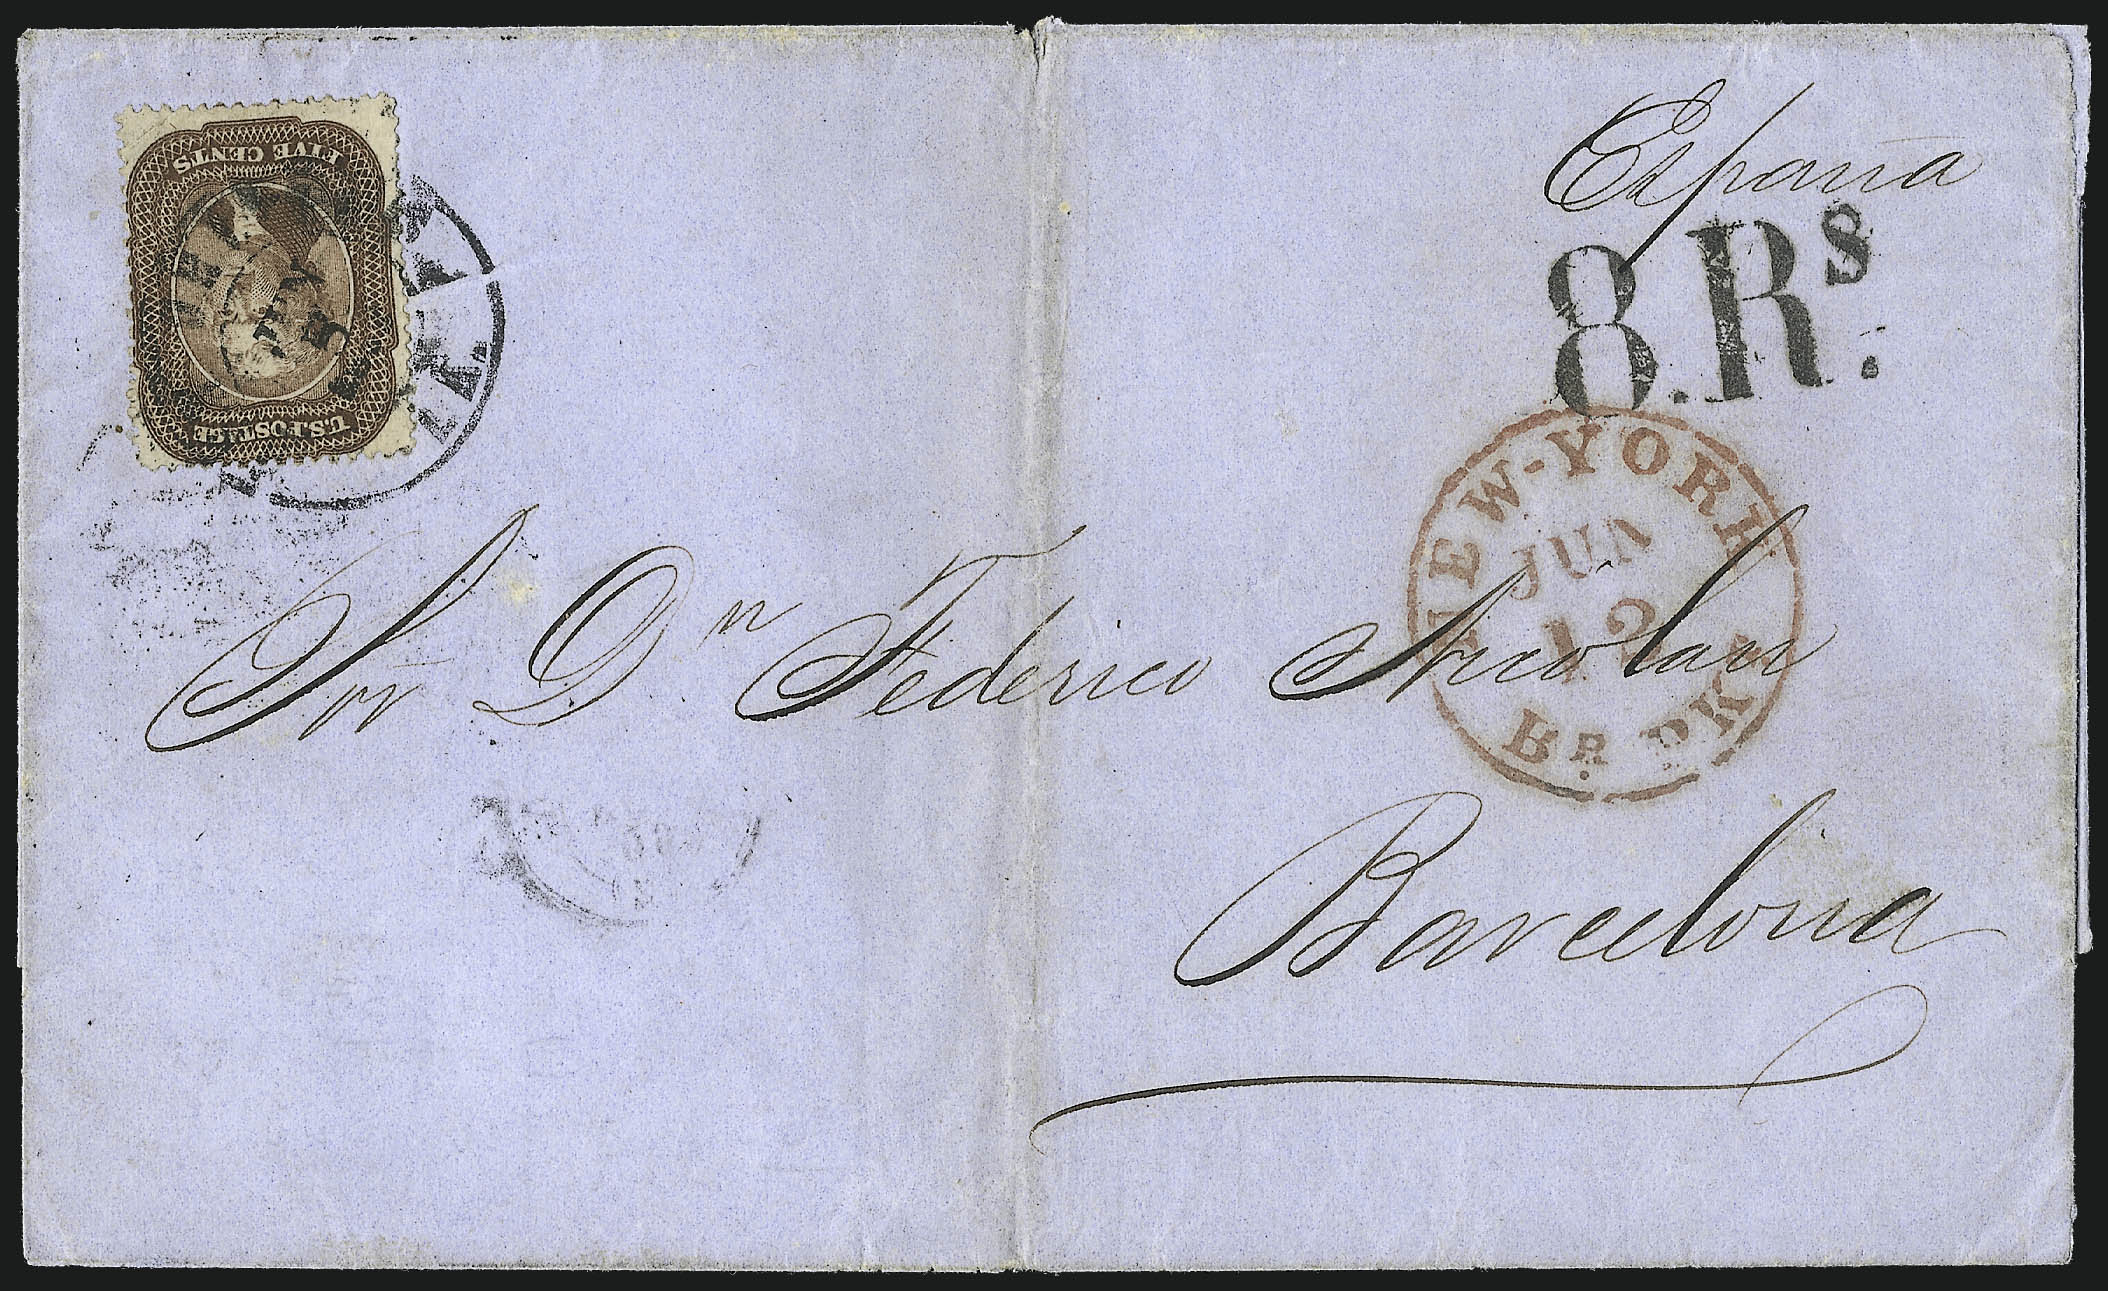 España
FIVE CENTS
U.S. POSTAGE
8.Rs.
NEW-YORK
JUN
12
BR. PKT
Sor Dn Federico Nicolau
Barcelona